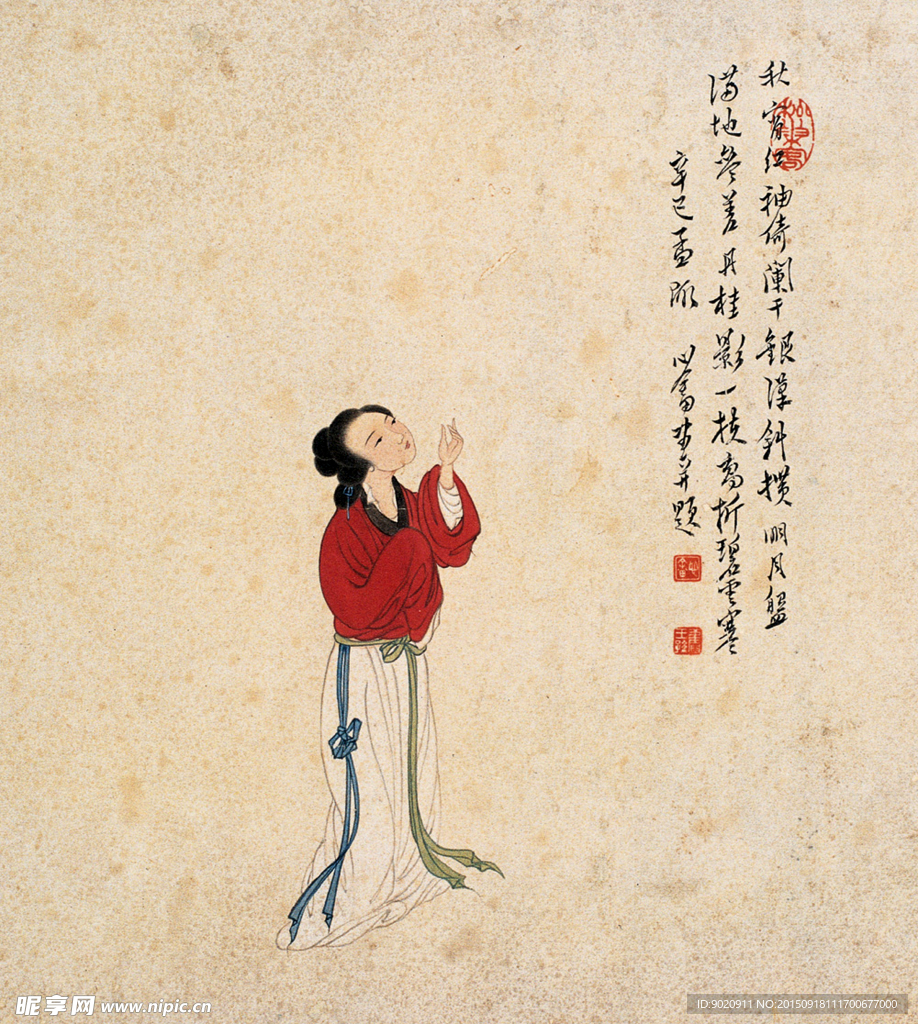 秋宵紅袖倚闌干銀漢斜橫明月盤
滿地參差丹桂影一枝高折碧雲寒
辛巳孟陬 心畬畫并題
昵享网 www.nipic.cn
ID:9020911 NO:20150918111700677000